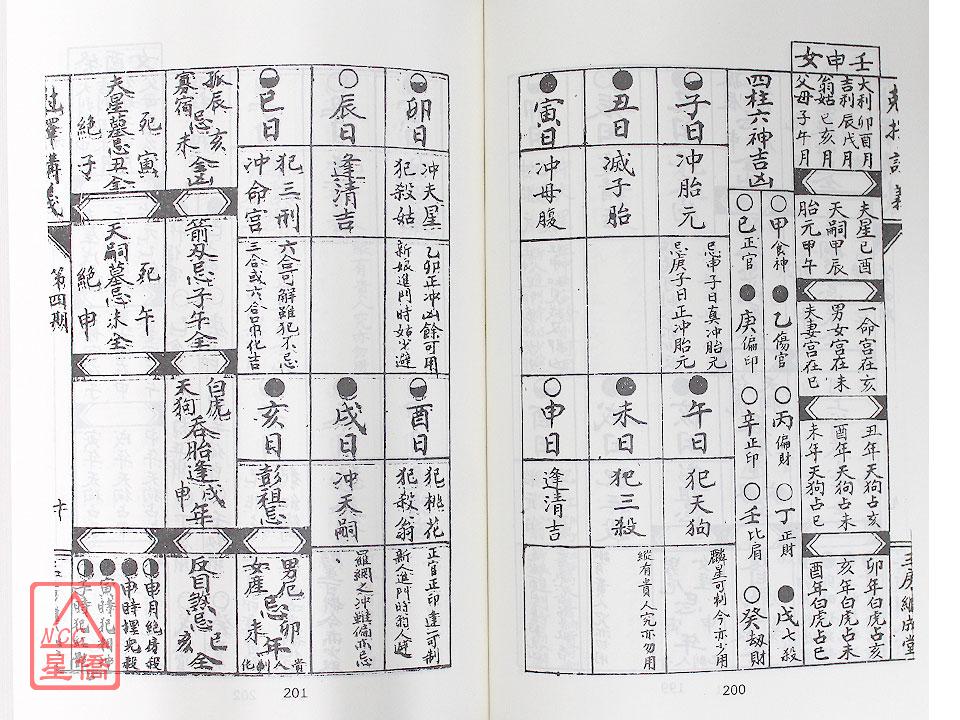 壬申女
大利卯酉月
吉利辰戌月
翁姑巳亥月
父母子午月
夫星己酉
天嗣甲辰
胎元甲午
一命宮在亥
男女宮在未
夫妻宮在巳
丑年天狗占亥
酉年天狗占未
未年天狗占巳
卯年白虎占亥
亥年白虎占未
酉年白虎占巳
四柱六神吉凶
○甲食神
●乙傷官
○丙偏財
○丁正財
●戊七殺
○巳正官
●庚偏印
○辛正印
○壬比肩
○癸劫財
子日
冲胎元
忌甲子日真冲胎元
忌庚子日正冲胎元
午日
犯天狗
麟星可制今亦少用
丑日
滅子胎
未日
犯三殺
縱有貴人究亦勿用
寅日
冲母腹
申日
逢清吉
三房繼成堂
200
卯日
冲夫星
犯殺姑
乙卯正冲凶餘可用
新娘進門時姑少避
酉日
犯桃花
犯殺翁
正官正印逢一可制
新人進門時翁人避
辰日
逢清吉
戌日
冲天嗣
羅網之冲雖偏亦忌
巳日
犯三刑
冲命宮
六合可解雖犯不忌
三合或六合吊化吉
亥日
彭祖忌
男厄忌卯年
女產忌未年
孤辰忌亥全凶
寡宿忌未全凶
箭刃忌子午全
白虎吞胎逢戌年
天狗吞胎逢申年
反目煞忌巳亥全
死寅
夫星墓忌丑全
絕子
死午
天嗣墓忌未全
絕申
第四期
201
NCC
星僑